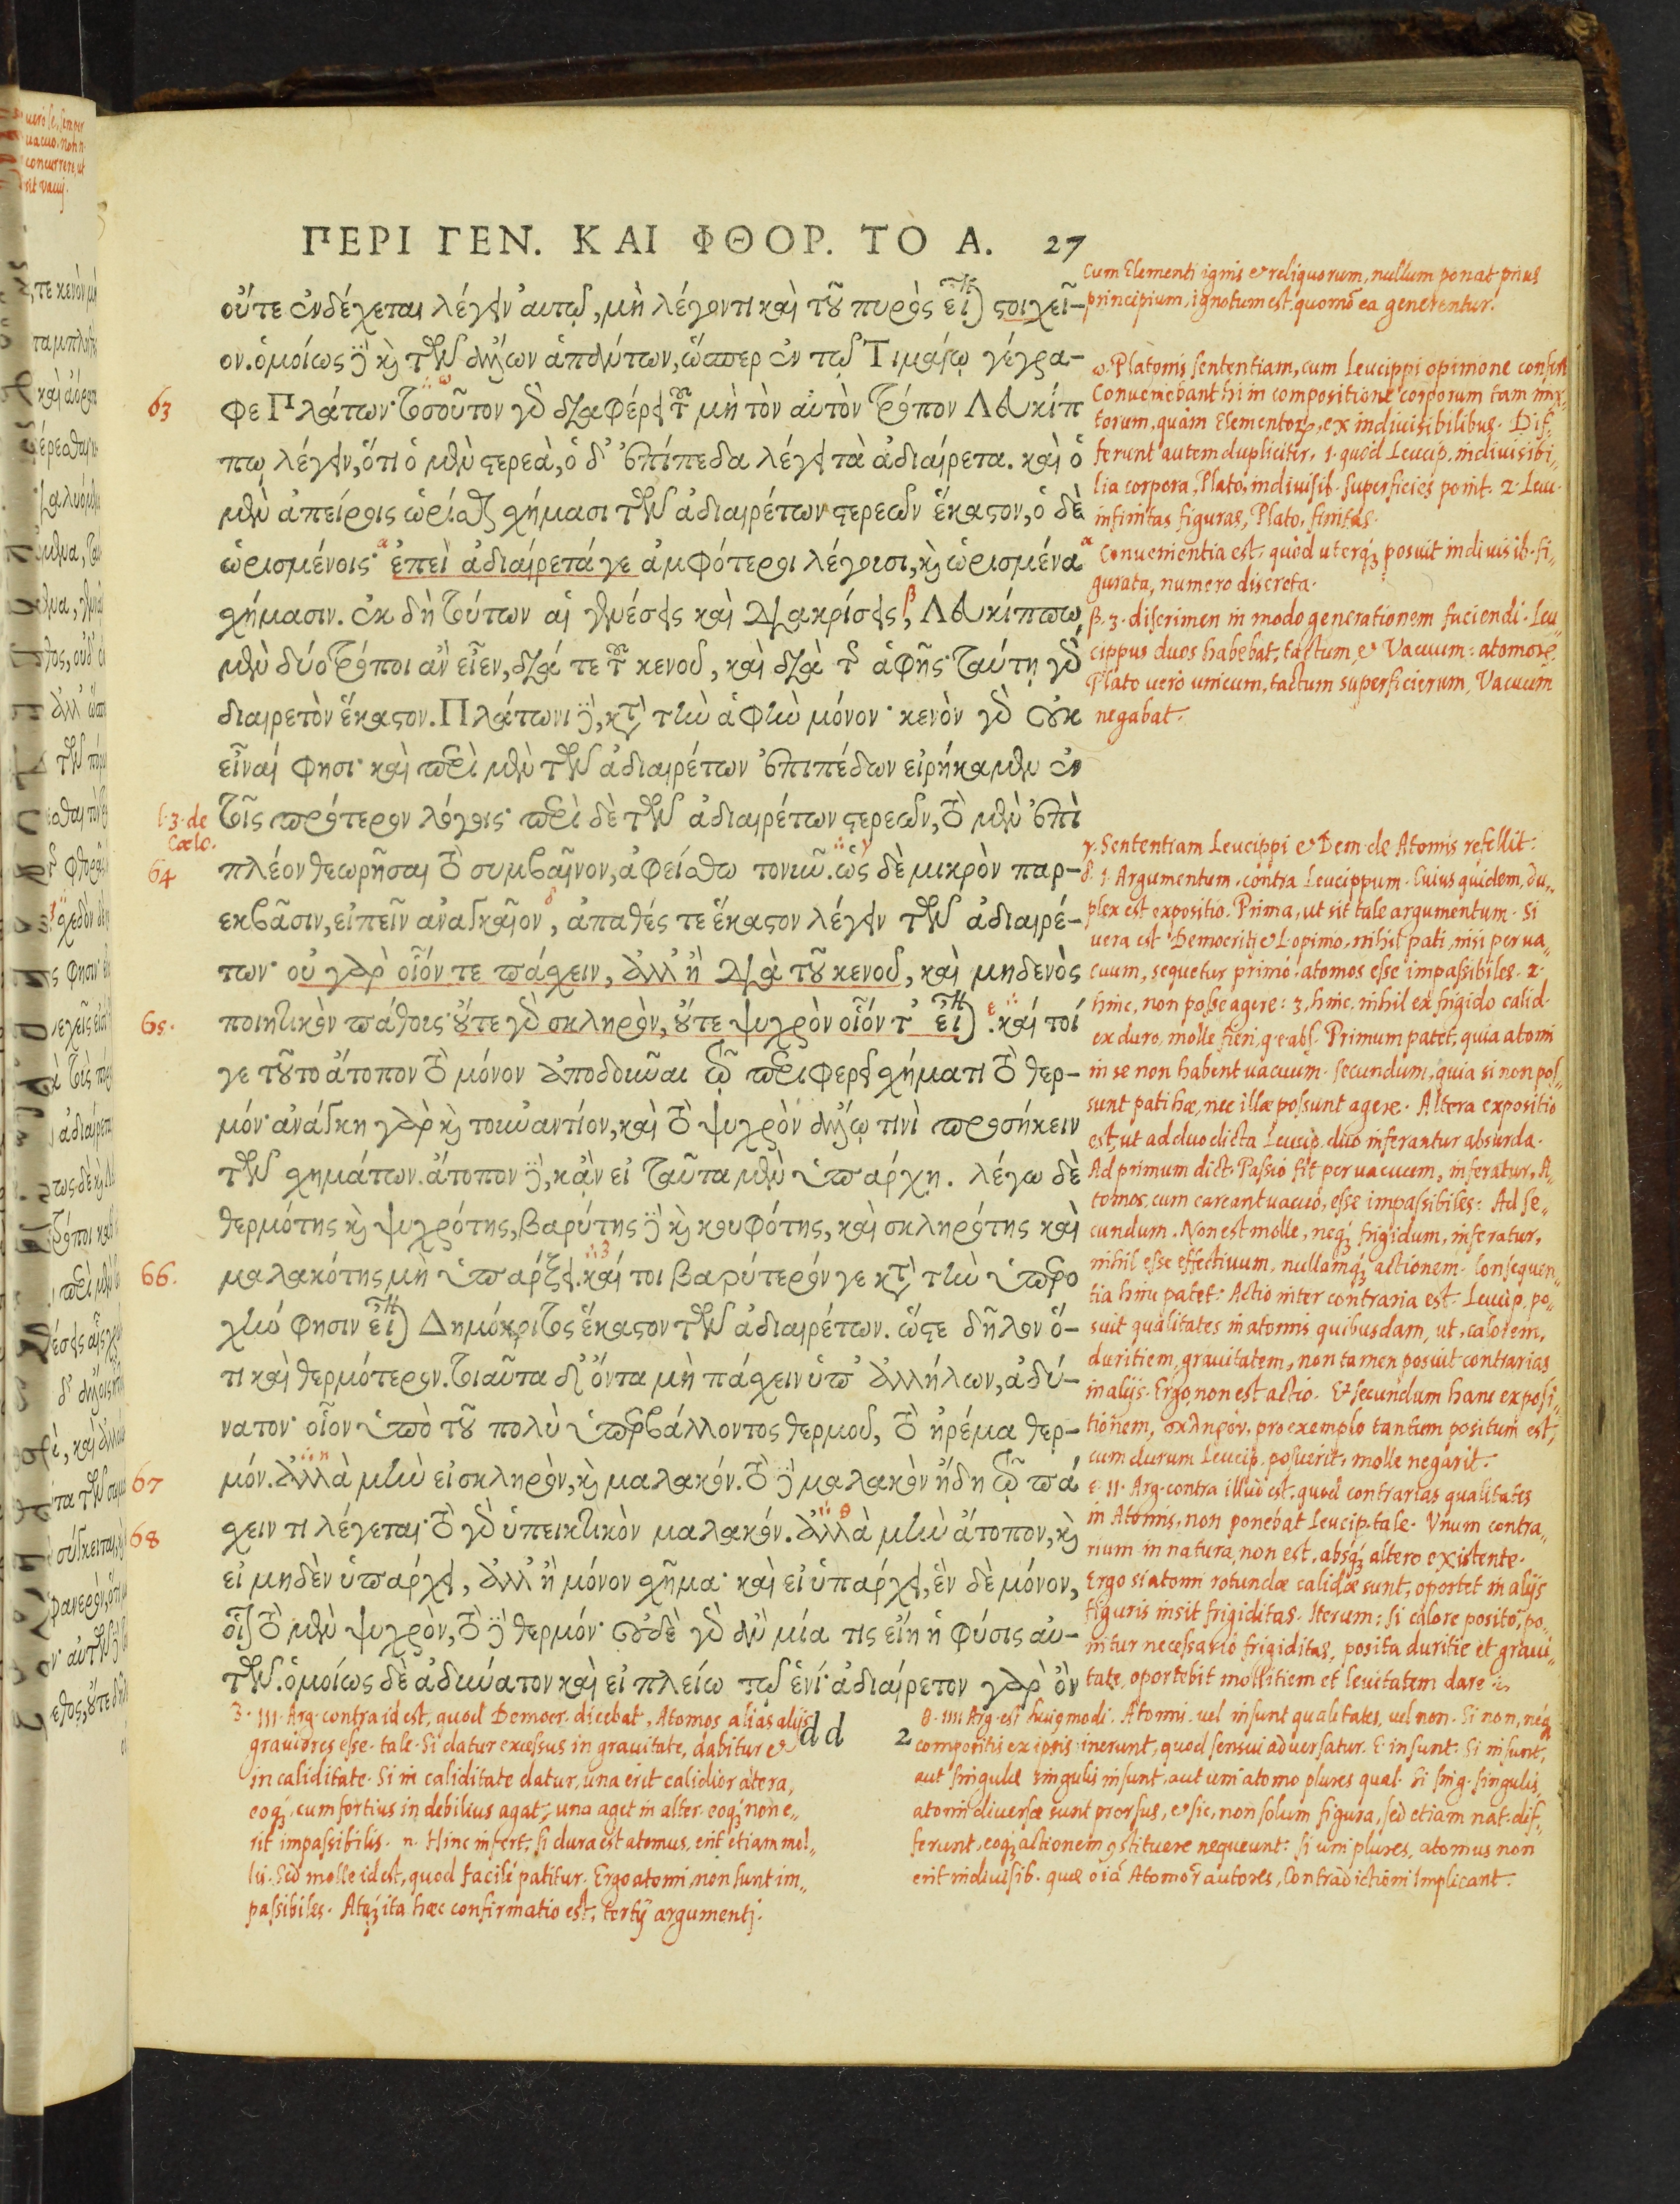 ΠΕΡΙ ΓΕΝ. ΚΑΙ ΦΘΟΡ. ΤΟ Α. 27
οὔτε ἐνδέχεται λέγειν αὐτῷ, μὴ λέγοντι καὶ τοῦ πυρὸς εἶναι στοιχεῖ-
ον. ὁμοίως δὲ καὶ τῶν ἄλλων ἁπάντων, ὥσπερ ἐν τῷ Τιμαίῳ γέγρα-
63 φε Πλάτων· τοσοῦτον γὰρ διαφέρει τοῦ μὴ τὸν αὐτὸν τρόπον Λευκίπ
πῳ λέγειν, ὅτι ὁ μὲν στερεὰ, ὁ δ' ἐπίπεδα λέγει τὰ ἀδιαίρετα. καὶ ὁ
μὲν ἀπείροις ὡρίσθαι σχήμασι τῶν ἀδιαιρέτων στερεῶν ἕκαστον, ὁ δὲ
ὡρισμένοις· ἐπεὶ ἀδιαίρετά γε ἀμφότεροι λέγουσι, καὶ ὡρισμένα
σχήμασιν. ἐκ δὴ τούτων αἱ γενέσεις καὶ διακρίσεις, Λευκίππῳ
μὲν δύο τρόποι ἂν εἶεν, διά τε τοῦ κενοῦ, καὶ διὰ τῆς ἁφῆς· ταύτῃ γὰρ
διαιρετὸν ἕκαστον. Πλάτωνι δὲ, κατὰ τὴν ἁφὴν μόνον· κενὸν γὰρ οὐκ
εἶναί φησι· καὶ περὶ μὲν τῶν ἀδιαιρέτων ἐπιπέδων εἰρήκαμεν ἐν
l. 3. de Cœlo.
τοῖς πρότερον λόγοις· περὶ δὲ τῶν ἀδιαιρέτων στερεῶν, τὸ μὲν ἐπὶ
64 πλέον θεωρῆσαι τὸ συμβαῖνον, ἀφείσθω τονῦν. ὡς δὲ μικρὸν παρ-
εκβᾶσιν, εἰπεῖν ἀναγκαῖον, ἀπαθές τε ἕκαστον λέγειν τῶν ἀδιαιρέ-
των· οὐ γὰρ οἷόν τε πάσχειν, ἀλλ' ἢ διὰ τοῦ κενοῦ, καὶ μηδενὸς
65. ποιητικὸν πάθους· οὔτε γὰρ σκληρὸν, οὔτε ψυχρὸν οἷόν τ' εἶναι. καί τοί
γε τοῦτο ἄτοπον τὸ μόνον ἀποδοῦναι τῷ περιφερεῖ σχήματι τὸ θερ-
μόν· ἀνάγκη γὰρ καὶ τοὐναντίον, καὶ τὸ ψυχρὸν ἄλλῳ τινὶ προσήκειν
τῶν σχημάτων. ἄτοπον δὲ, κἂν εἰ ταῦτα μὲν ὑπάρχῃ. λέγω δὲ
θερμότης καὶ ψυχρότης, βαρύτης δὲ καὶ κουφότης, καὶ σκληρότης καὶ
66. μαλακότης μὴ ὑπάρξει. καί τοι βαρύτερόν γε κατὰ τὴν ὑπερο
χήν φησιν εἶναι Δημόκριτος ἕκαστον τῶν ἀδιαιρέτων. ὥστε δῆλον ὅ-
τι καὶ θερμότερον. τοιαῦτα δ' ὄντα μὴ πάσχειν ὑπ' ἀλλήλων, ἀδύ-
νατον· οἷον ὑπὸ τοῦ πολὺ ὑπερβάλλοντος θερμοῦ, τὸ ἠρέμα θερ-
67 μόν. ἀλλὰ μὴν εἰ σκληρὸν, καὶ μαλακόν. τὸ δὲ μαλακὸν ἤδη τῷ πά
68 σχειν τι λέγεται· τὸ γὰρ ὑπεικτικὸν μαλακόν. ἀλλὰ μὴν ἄτοπον, καὶ
εἰ μηδὲν ὑπάρχει, ἀλλ' ἢ μόνον σχῆμα· καὶ εἰ ὑπάρχει, ἓν δὲ μόνον,
οἷον τὸ μὲν ψυχρὸν, τὸ δὲ θερμόν· οὐδὲ γὰρ ἂν μία τις εἴη ἡ φύσις αὐ-
τῶν. ὁμοίως δὲ ἀδύνατον καὶ εἰ πλείω τῷ ἑνί· ἀδιαίρετον γὰρ ὂν
dd 2
Cum Elementi ignis et reliquorum, nullum ponat prius
principium, ignotum est, quomo ea generentur.
ω. Platonis sententiam, cum Leucippi opinione confert
Conveniebant hi in compositione corporum tam mix-
torum, quàm Elementor, ex indivisibilibus. Dif-
ferunt autem dupliciter, 1. quòd Leucip. indivisibi-
lia corpora, Plato, indivisib. superficies ponit. 2. Leu-
infinitas figuras, Plato, finitas.
α Convenientia est, quòd uterq; posuit indivisib. fi-
gurata, numero discreta.
β. 3. discrimen in modo generationem faciendi. Leu-
cippus duos habebat, tactum, et Vacuum: atomorē.
Plato uerò unicum, tactum superficierum, Vacuum
negabat.
γ. Sententiam Leucippi et Dem. de Atomis refellit:
δ. 1. Argumentum contra Leucippum. Cuius quidem, du-
plex est expositio. Prima, ut sit tale argumentum. Si
vera est Democriti et L. opinio, nihil pati, nisi per va-
cuum, sequetur primò, atomos esse impassibiles. 2.
hinc, non posse agere: 3. hinc, nihil ex frigido calid.
ex duro, molle fieri, q. e. abs. Primum patet, quia atomi
in se non habent vacuum. secundum, quia si non pos-
sunt pati hæ, nec illæ possunt agere. Altera expositio
est, ut ad duo dicta Leucip. duo inferantur absurda.
Ad primum dict. Passio fit per vacuum, inferatur, A-
tomos, cum careant vacuo, esse impassibiles: Ad se-
cundum. Non est molle, neq; frigidum, inferatur,
nihil esse effectivum, nullamq; actionem. Consequen-
tia hinc patet: Actio inter contraria est. Leucip. po-
suit qualitates in atomis quibusdam, ut, calorem,
duritiem, gravitatem, non tamen posuit contrarias
in alijs. Ergo, non est actio. Et secundum hanc exposi-
tionem, σκληρὸν, pro exemplo tantum positum est,
cum durum Leucip. posuerit, molle negarit.
ε. 11. Arg. contra illud est, quod contrarias qualitates
in Atomis, non ponebat Leucip. tale. Unum contra-
rium in natura, non est, absq; altero existente.
Ergo si atomi rotundæ calidæ sunt, oportet in alijs
figuris insit frigiditas. Iterum: si calore posito, po-
nitur necessariò frigiditas, posita duritie et gravi-
tate, oportebit mollitiem et levitatem dare.
3. 111. Arg. contra id est, quod Democr. dicebat, Atomos alias alijs
graviores esse. tale. Si datur excessus in gravitate, dabitur et
in caliditate. Si in caliditate datur, una erit calidior altera,
eoq;, cum fortius in debilius agat, una aget in alter. eoq; non e-
rit impassibilis. n. Hinc infert, si dura est atomus, erit etiam mol-
lis. Sed molle id est, quod facilè patitur. Ergo atomi, non sunt im-
passibiles. Atq; ita hæc confirmatio est, tertij argumenti.
θ. 1111 Arg. est huiusmodi. Atomi, vel insunt qualitates, vel non. Si non, neq;
compositis ex ipsis inerunt, quod sensui adversatur. E. insunt: Si insunt,
aut singulæ singulis insunt, aut uni atomo plures qual. Si sing. singulis,
atomi diversæ sunt prorsus, et sic, non solum figura, sed etiam nat. dif-
ferunt, eoq; actionem constituere nequeunt: si uni plures, atomus non
erit indivisib. quæ oia Atomor autores, Contradictioni implicant.